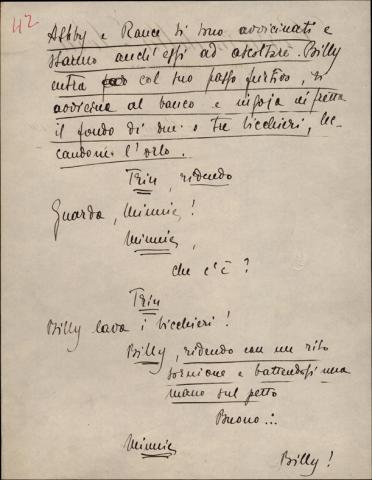 42
Ashby e Rance si sono avvicinati e
stanno anch'essi ad ascoltare. Billy
entra col suo passo furtivo, si
avvicina al banco e ingoja in fretta
il fondo di due o tre bicchieri, lec-
candone l'orlo.
Trin, ridendo
Guarda, Minnie!
Minnie,
che c'è?
Trin
Billy lava i bicchieri!
Billy, ridendo con un riso
sornione e battendosi una
mano sul petto
Buono...
Minnie
Billy!